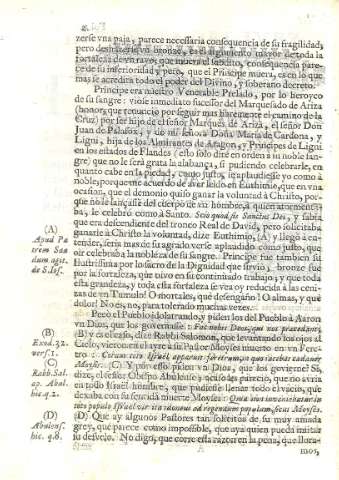 zerse vna paja, parece necessaria consequencia de su fragilidad,
pero deshazerse vn bronze, es el argumento mayor de toda la
fortaleza de vn rayo; que muera el subdito, consequencia pare-
ce de su inferioridad; pero, que el Principe muera, es en lo que
mas se acredita todo el poder del Divino, y soberano decreto.
Principe era nuestro Venerable Prelado, por lo heroyco
de su sangre: viose inmediato sucessor del Marquesado de Ariza
(honor, que renunciò por seguir mas libremente el camino de la
Cruz) por ser hijo de el señor Marquès de Ariza, el señor Don
Juan de Palafox, y de mi señora Doña Maria de Cardona, y
Ligni, hija de los Almirantes de Aragon, y Principes de Ligni
en los estados de Flandes (esto solo dirè en orden à su noble san-
gre) que no le serà grata la alabança, si pudiendo celebrarle, en
quanto cabe en la piedad, como justo, le aplaudiesse yo como à
noble; porque me acuerdo de aver leido en Euthimio, que en vna
ocasion, que el demonio quiso ganar la voluntad à Christo, por-
que no le lançasse del cuerpo de vn hombre, à quien atormenta-
ba, le celebrò como à Santo. Scio quod sis Sanctus Dei, y sabia
que era descendiente del tronco Real de David, pero solicitaba
ganarle à Christo la voluntad, dize Euthimio, (A) y llegò à en-
tender, seria mas de su agrado verse aplaudido como justo, que
oir celebrada la nobleza de su sangre. Principe fue tambien su
Ilustrissima por lo sacro de la Dignidad que sirviò; bronze fue
por la fortaleza, que tuvo en su continuado trabajo; y que toda
esta grandeza, y toda esta fortaleza se vea oy reducida à las ceni-
zas de vn Tumulo! O mortales, què desengaño! O almas, y què
dolor! No es, no, para tolerado muchas vezes.
(A)
Apud Pa
trem Soa
dum agit.
de S. Ios.
Pecò el Pueblo idolatrando, y piden los del Pueblo à Aaron
vn Dios, que los governasse: Fac nobis Deos, qui nos præcedant,
(B) y es el caso, dize Rabbi Salomon, que levantando los ojos al
Cielo, vieron en el ayre à su Pastor Moyses muerto en vn Fere-
tro: Coram toto Israel apparuit feretrum, in quo iacebat cadauer
Moysis. (C) Y por esso piden vn Dios, que los govierne? Si,
dize, el docto Obispo Abulense; acaso les pareciò, que no avria
en todo Israel hombre, que pudiesse llenar todo el vacio, que
dexaba con su sentida muerte Moyses: Quia non inveniebatur in
toto populo Israel vir ita idoneus ad regendum populum, sicut Moyses.
(D) Que ay algunos Pastores tan solicitos de su muy amada
grey, que parece como impossible, que aya quien pueda imitar
su desvelo. No digo, que corre esta razon en la pena, que llora-
(B)
Exod. 32.
vers. 1.
(C)
Rabb. Sal.
ap. Abul.
hic q. 2.
(D)
Abulens.
hic. q. 8.
mos,